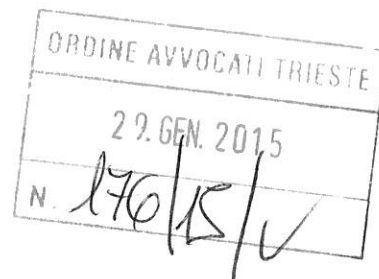 ORDINE AVVOCATI TRIESTE
29. GEN. 2015
N. 176/15/V